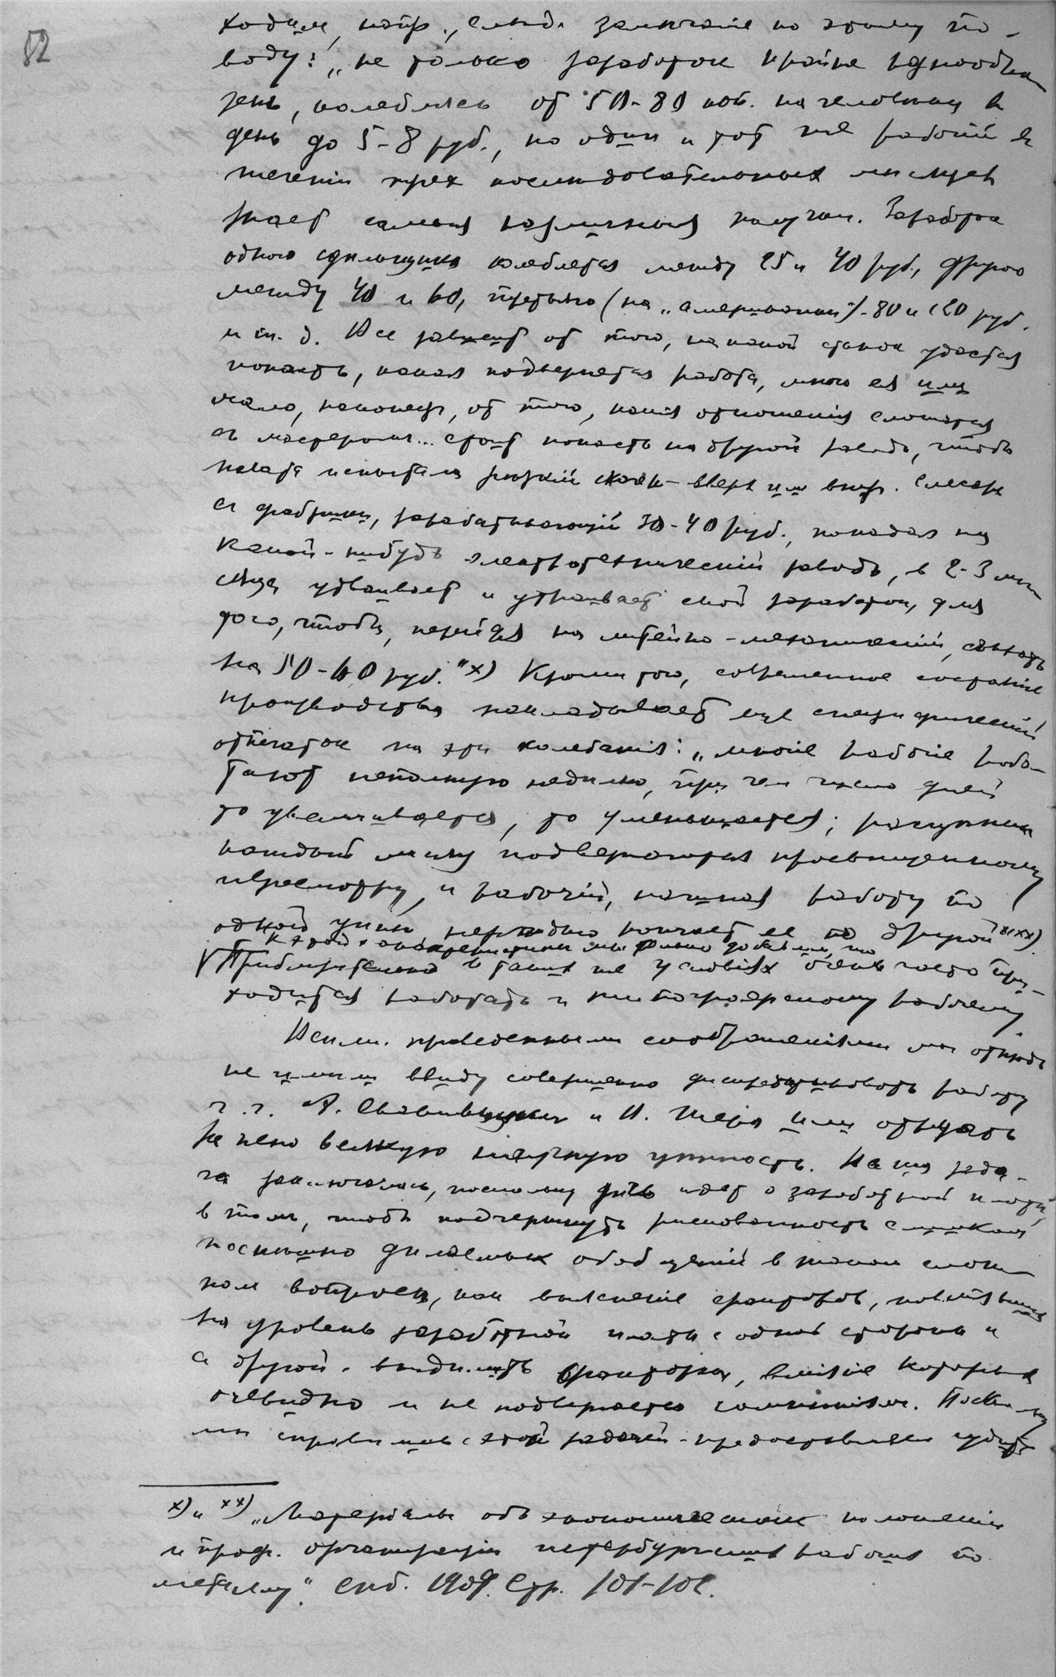 52
ходим, напр., след. замечание по этому по-
воду: „не только заработок крайне разнообра-
зен, колеблясь от 50-80 коп. на человека в
день до 5-8 руб., но один и тот же рабочий в
течении трех последовательных месяцев
знает самыя различныя получки. Заработок
одного сдельщика колеблется между 25 и 40 руб., другого
между 40 и 60, третьяго (на „американке")-80 и 120 руб.
и т. д. Все зависит от того, на какой станок удастся
попасть, какая подвернется работа, много ея или
мало, наконец, от того, какия отношения сложатся
с мастером... стоит попасть на другой завод, чтобы
плата испытала резкий скачок - вверх или вниз. Слесарь
с фабрики, зарабатывающий 30-40 руб., попадая на
какой-нибудь электротехнический завод, в 2-3 ме-
сяца удваивает и утраивает свой заработок, для
того, чтобы, перейдя на литейно-механический, съехать
на 50-60 руб."х) Кроме того, современное состояние
производства накладывает еще специфический
отпечаток на эти колебания: „многие рабочие рабо-
тают неполную неделю, при чем число дней
то увеличивается, то уменьшается; расценки
каждый месяц подвергаются
пересмотру, и рабочий, начиная работу по
одной цене, нередко кончает ее по другой"хх)
к этой характеристике мы должны добавить, что
Приблизительно в таких же условиях очень часто при-
ходится работать и типографскому рабочему.
Всеми приведенными соображениями мы отнюдь
не имели ввиду совершенно дискредитировать работу
г. г. А. Свавицкаго и В. Шера или отрицать
за нею всякую научную ценность. Наша зада-
ча заключалась, поскольку речь идет о заработной плате,
в том, чтобы подчеркнуть рискованность слишком
поспешно делаемых обобщений в таком слож-
ном вопросе, как выяснение факторов, повлиявших
на уровень заработной платы с одной стороны и
с другой - выделить факторы, влияние которых
очевидно и не подвергается сомнениям. Насколько
мы справились с этой задачей - предоставляем судить
х) и хх) „Материалы об экономическом положении
и проф. организации петербургских рабочих по
металлу". Спб. 1909. Стр. 101-102.